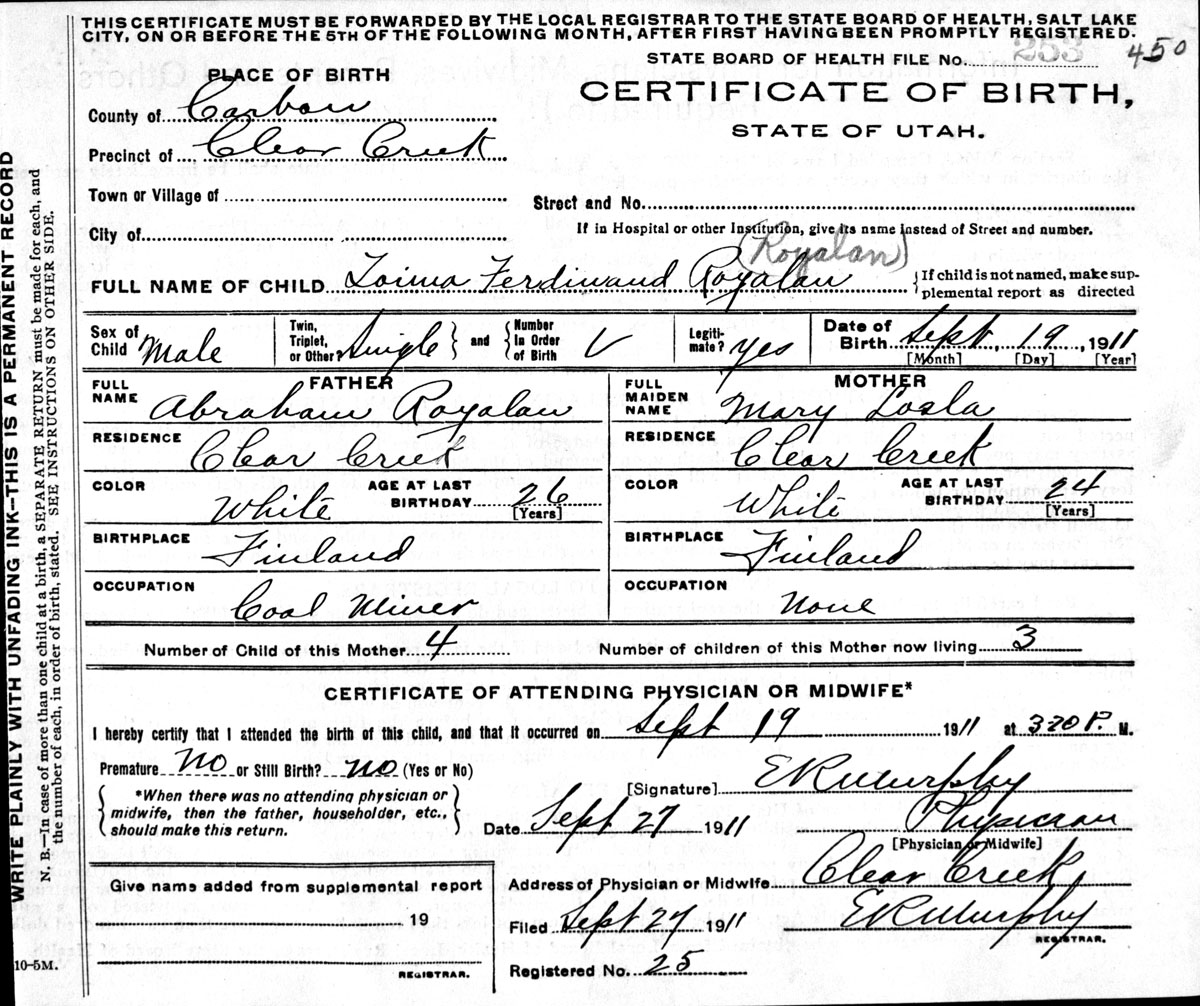 THIS CERTIFICATE MUST BE FORWARDED BY THE LOCAL REGISTRAR TO THE STATE BOARD OF HEALTH, SALT LAKE
CITY, ON OR BEFORE THE 5TH OF THE FOLLOWING MONTH, AFTER FIRST HAVING BEEN PROMPTLY REGISTERED.
STATE BOARD OF HEALTH FILE No. 253 450
PLACE OF BIRTH
CERTIFICATE OF BIRTH,
STATE OF UTAH.
County of Carbon
Precinct of Clear Creek
Town or Village of
Street and No.
City of
If in Hospital or other Institution, give its name instead of Street and number.
(Royalan)
FULL NAME OF CHILD Toima Ferdinand Royalan
{If child is not named, make sup-
plemental report as directed
Sex of Child Male
Twin, Triplet, or Other Single } and { Number In Order of Birth V
Legiti-mate? yes
Date of Birth Sept, 19, 1911
[Month] [Day] [Year]
FATHER
FULL NAME Abraham Royalan
RESIDENCE Clear Creek
COLOR White AGE AT LAST BIRTHDAY 26
[Years]
BIRTHPLACE Finland
OCCUPATION Coal Miner
MOTHER
FULL MAIDEN NAME Mary Losla
RESIDENCE Clear Creek
COLOR White AGE AT LAST BIRTHDAY 24
[Years]
BIRTHPLACE Finland
OCCUPATION None
Number of Child of this Mother 4 Number of children of this Mother now living 3
CERTIFICATE OF ATTENDING PHYSICIAN OR MIDWIFE*
I hereby certify that I attended the birth of this child, and that it occurred on Sept 19 1911 at 3 20 P. M.
Premature No or Still Birth? No (Yes or No)
{*When there was no attending physician or
midwife, then the father, householder, etc.,
should make this return.}
[Signature] E R Murphy
Date Sept 27 1911 Physician
[Physician or Midwife]
Give name added from supplemental report
19
REGISTRAR.
Address of Physician or Midwife Clear Creek
Filed Sept 27 1911 E R Murphy
REGISTRAR.
Registered No. 25
10-5M.
WRITE PLAINLY WITH UNFADING INK—THIS IS A PERMANENT RECORD
N. B.—In case of more than one child at a birth, a SEPARATE RETURN must be made for each, and
the number of each, in order of birth, stated. SEE INSTRUCTIONS ON OTHER SIDE.